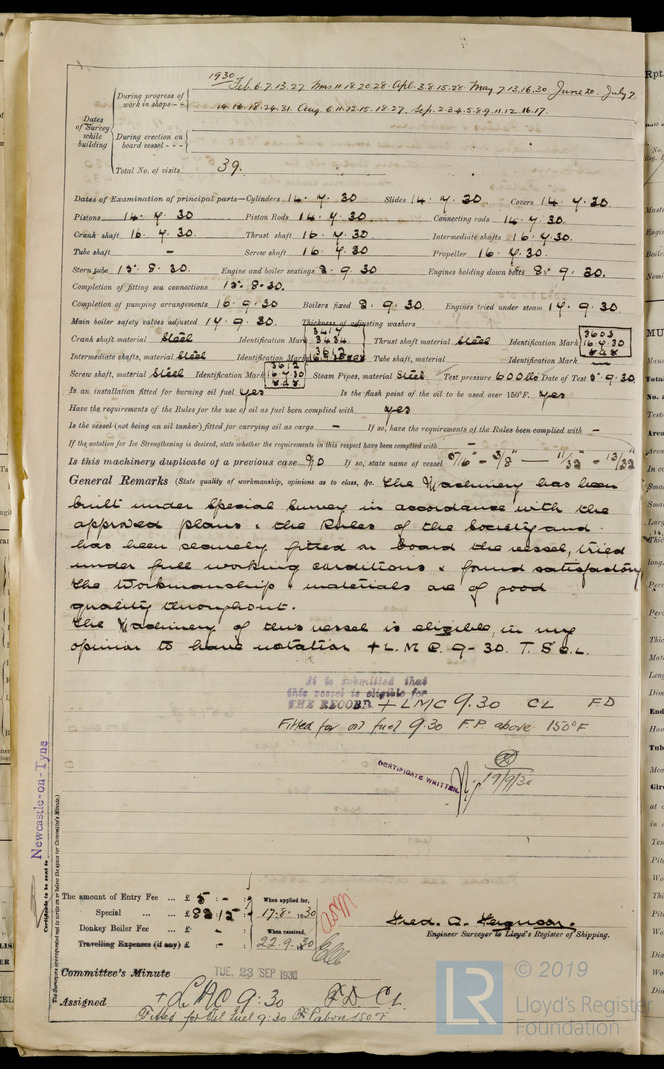 1930
During progress of work in shops - - Feb. 6.7.13.27 Mar. 11.18.20.28. Apl. 3.8.15.28. May 7.13.16.30 June 20. July 7.
14.16.18.24.31. Aug. 6.11.12.15.18.27. Sep. 2.3.4.5.8.9.11.12.16.17.
Dates of Survey while building
During erection on board vessel - - -
Total No. of visits 39.
Dates of Examination of principal parts—Cylinders 14. 7. 30 Slides 14. 7. 30. Covers 14. 7. 30.
Pistons 14. 7. 30 Piston Rods 14. 7. 30. Connecting rods 14. 7. 30.
Crank shaft 16. 7. 30. Thrust shaft 16. 7. 30. Intermediate shafts 16. 7. 30.
Tube shaft - Screw shaft 16. 7. 30 Propeller 16. 7. 30.
Stern tube 15. 8. 30. Engine and boiler seatings 8. 9. 30. Engines holding down bolts 8. 9. 30.
Completion of fitting sea connections 15. 8. 30.
Completion of pumping arrangements 16. 9. 30 Boilers fixed 8. 9. 30. Engines tried under steam 17. 9. 30.
Main boiler safety valves adjusted 17. 9. 30. Thickness of adjusting washers
Crank shaft material Steel Identification Mark 3434 Thrust shaft material Steel Identification Mark 3603 16.7.30
Intermediate shafts, material Steel Identification Marks Tube shaft, material Identification Mark —
Screw shaft, material Steel Identification Mark 3612 16.7.30 Steam Pipes, material Steel Test pressure 600 lbs Date of Test 5. 9. 30
Is an installation fitted for burning oil fuel yes Is the flash point of the oil to be used over 150°F. yes
Have the requirements of the Rules for the use of oil as fuel been complied with yes
Is the vessel (not being an oil tanker) fitted for carrying oil as cargo - If so, have the requirements of the Rules been complied with -
If the notation for Ice Strengthening is desired, state whether the requirements in this respect have been complied with -
Is this machinery duplicate of a previous case No If so, state name of vessel 5/16" - 3/8" - 11/32" - 13/32"
General Remarks (State quality of workmanship, opinions as to class, &c. The Machinery has been
built under Special Survey in accordance with the
approved plans & the Rules of the Society and
has been securely fitted on board the vessel, tried
under full working conditions & found satisfactory
The Workmanship & materials are of good
quality throughout.
The Machinery of this vessel is eligible, in my
opinion to have notation + L.M.C. 9-30. T.S. C.L.
It is submitted that
this vessel is eligible for
THE RECORD + LMC 9.30 CL FD
Fitted for oil fuel 9.30 F.P. above 150°F
CERTIFICATE WRITTEN.
19/9/30
Newcastle-on-Tyne
Certificate to be sent to
The Surveyors are requested not to write on or below the space for Committee's Minute.
The amount of Entry Fee ... £ 5 : - : When applied for,
Special ... ... £ 82 : 15 : 17. 9. 1930
Donkey Boiler Fee ... £ - : When received,
Travelling Expenses (if any) £ - : 22. 9. 1930
Fred. A. Ferguson.
Engineer Surveyor to Lloyd's Register of Shipping.
Committee's Minute TUE. 23 SEP 1930
Assigned + LMC 9.30 F.D. C.L.
Fitted for Oil fuel 9.30 F.P. above 150°F
LR © 2019
Lloyd's Register
Foundation